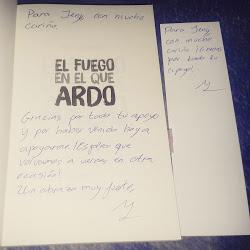 Para Jeny, con mucho
cariño.
EL FUEGO
EN EL QUE
ARDO
Gracias por todo tu apoyo
y por haber venido hoy a
apoyarme. ¡Espero que
volvamos a vernos en otra
ocasión!
¡Un abrazo muy fuerte,
Para Jeny,
con mucho
cariño. ¡Gracias
por todo tu
apoyo!